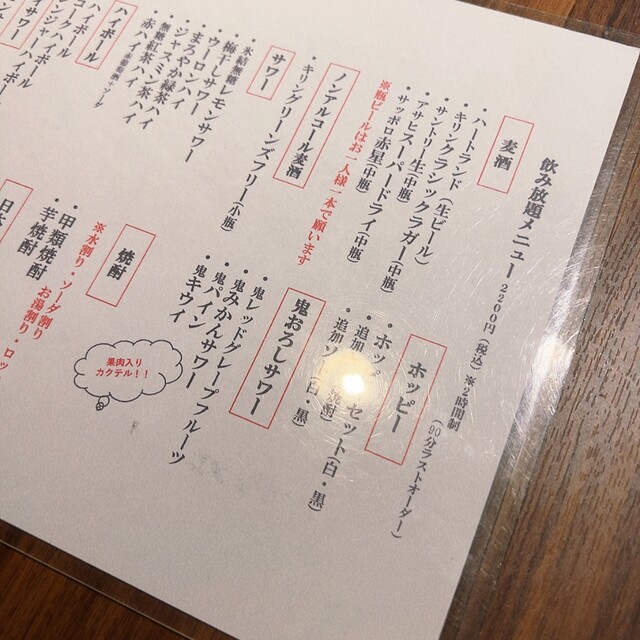 飲み放題メニュー 2200円(税込)※2時間制
(90分ラストオーダー)
麦酒
・ハートランド(生ビール)
・キリンクラシックラガー(中瓶)
・サントリー生(中瓶)
・アサヒスーパードライ(中瓶)
・サッポロ赤星(中瓶)
※瓶ビールはお一人様一本で願います
ノンアルコール麦酒
・キリングリーンズフリー(小瓶)
サワー
・氷結無糖レモンサワー
・梅干しサワー
・ウーロンハイ
・まろやか緑茶ハイ
・ジャスミン茶ハイ
・無糖紅茶ハイ
・赤ハイ
ハイボール
ホッピー
セット(白・黒)
・追加
(白・黒)
鬼おろしサワー
・鬼レッドグレープフルーツ
・鬼みかんサワー
・鬼パインサワー
・鬼キウイ
果肉入り
カクテル!!
焼酎
※水割り・ソーダ割り
お湯割り・ロッ
・甲類焼酎
・芋焼酎